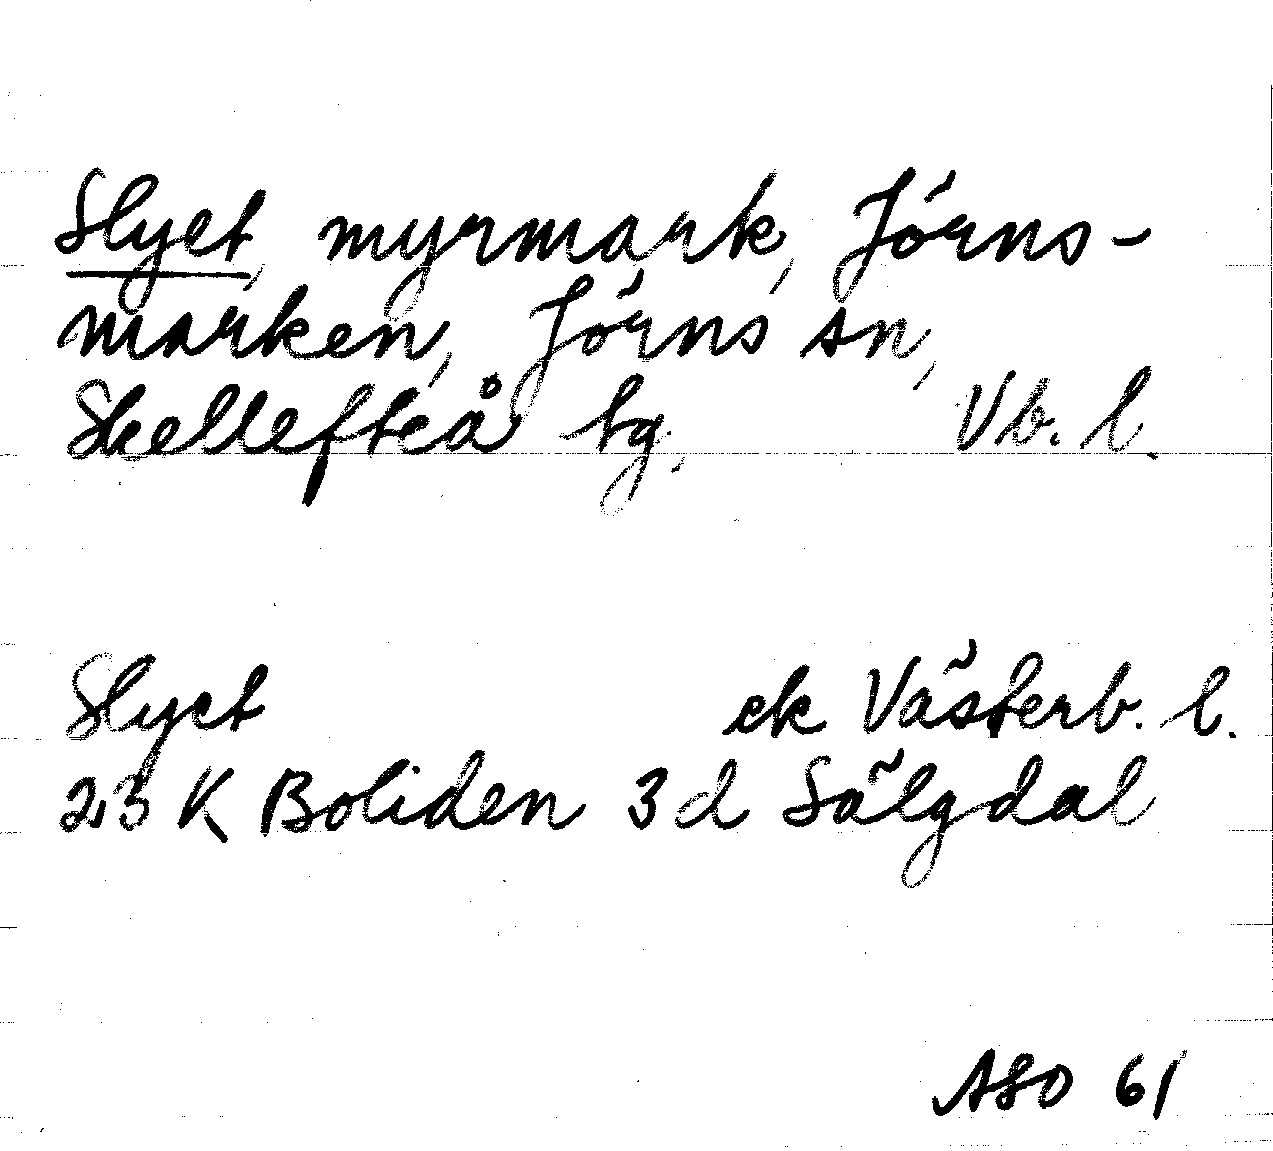 Slyet, myrmark, Jörns-
marken, Jörns sn,
Skellefteå tg, Vb. l.
Slyet ek Västerb. l.
23 K Boliden 3 d Sälgdal
ASO 61